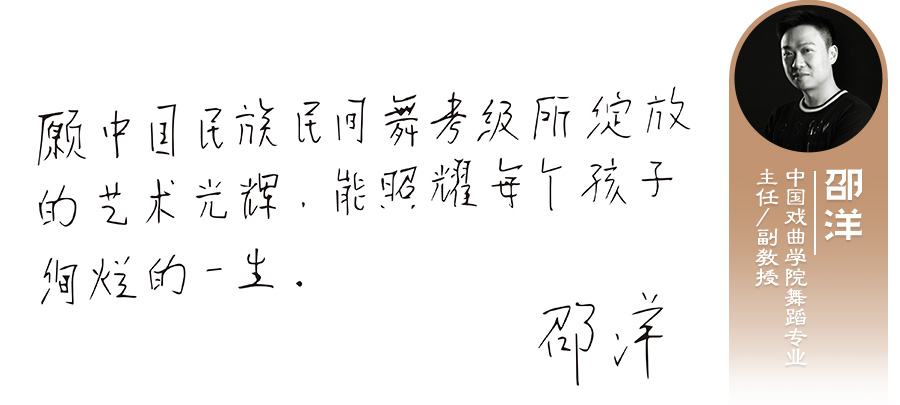 愿中国民族民间舞考级所绽放
的艺术光辉，能照耀每个孩子
绚烂的一生.
邵洋
邵洋
中国戏曲学院舞蹈专业
主任/副教授